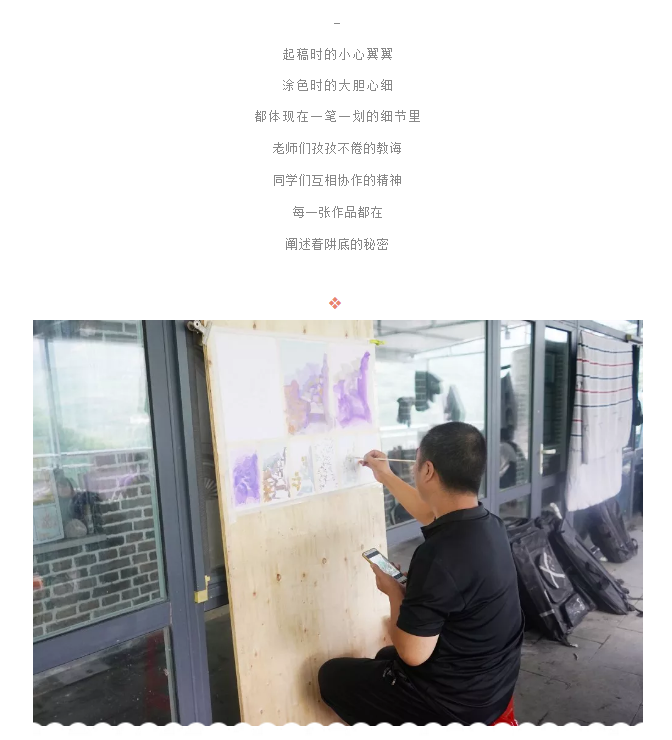 起稿时的小心翼翼
涂色时的大胆心细
都体现在一笔一划的细节里
老师们孜孜不倦的教诲
同学们互相协作的精神
每一张作品都在
阐述着阱底的秘密